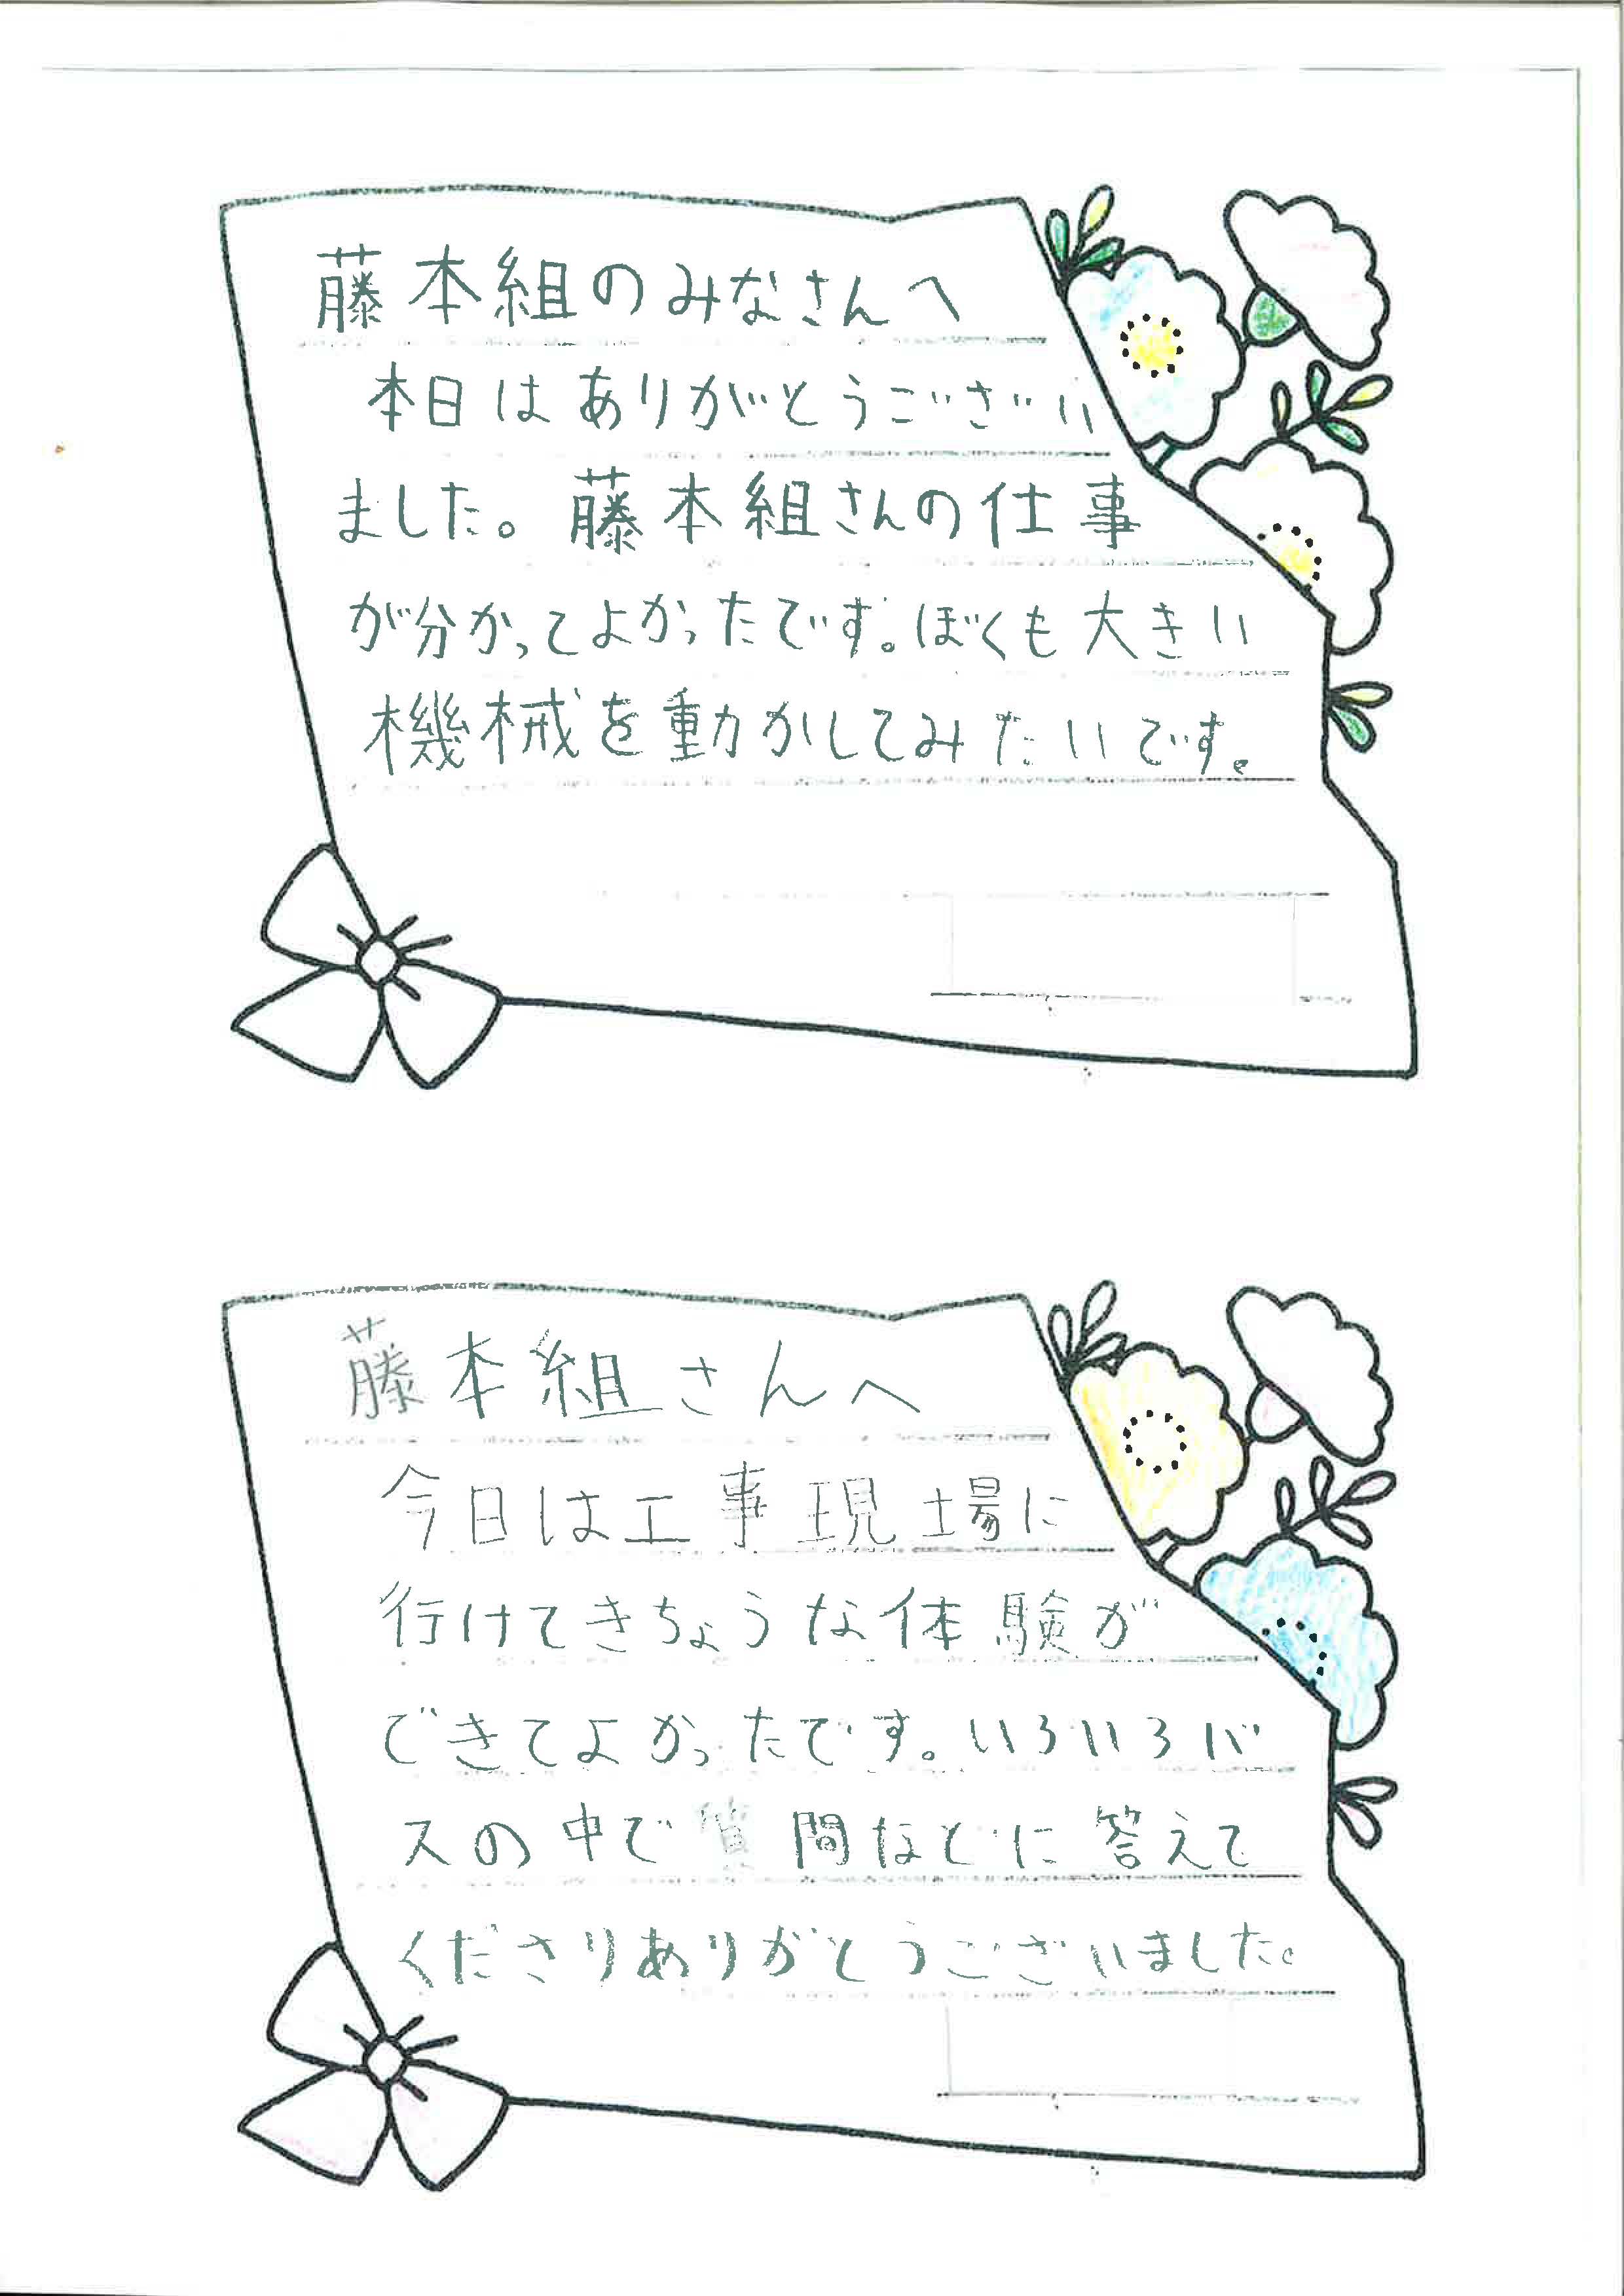 藤本組のみなさんへ
本日はありがとうござい
ました。藤本組さんの仕事
が分かってよかったです。ぼくも大きい
機械を動かしてみたいです。
藤本組さんへ
今日は工事現場に
行けてきちょうな体験が
できてよかったです。いろいろバ
スの中で質問などに答えて
くださりありがとうございました。